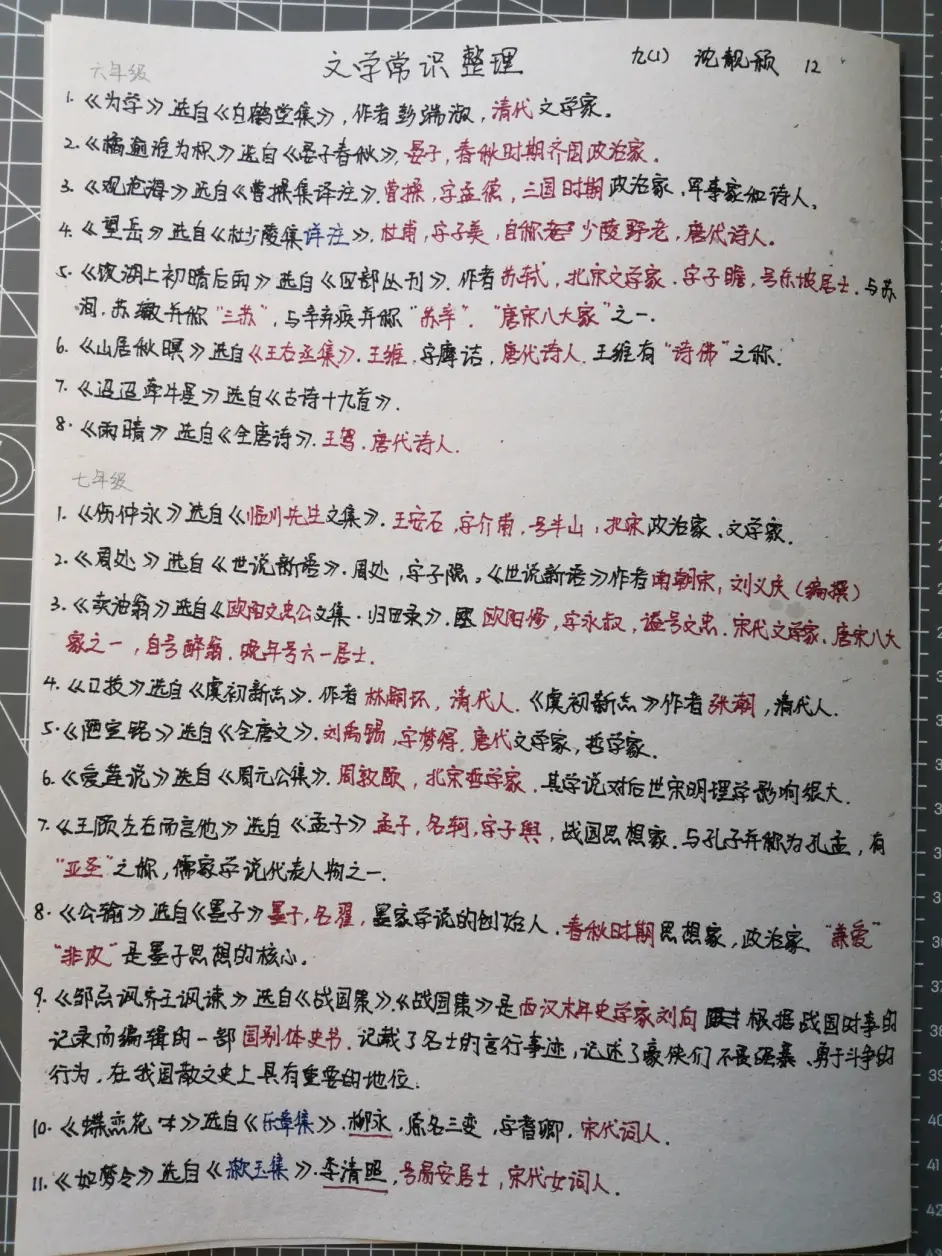 文学常识整理 九(1) 沈靓颖 12
六年级
1.《为学》选自《白鹤堂集》,作者彭端淑,清代文学家。
2.《橘逾淮为枳》选自《晏子春秋》,晏子,春秋时期齐国政治家.
3.《观沧海》选自《曹操集译注》.曹操,字孟德,三国时期政治家,军事家和诗人。
4.《望岳》选自《杜少陵集详注》.杜甫,字子美,自称少陵野老,唐代诗人。
5.《饮湖上初晴后雨》选自《四部丛刊》.作者苏轼,北宋文学家.字子瞻,号东坡居士.与苏
洵,苏辙并称"三苏",与辛弃疾并称"苏辛"."唐宋八大家"之一.
6.《山居秋暝》选自《王右丞集》.王维.字摩诘,唐代诗人.王维有"诗佛"之称.
7.《迢迢牵牛星》选自《古诗十九首》.
8.《雨晴》选自《全唐诗》.王驾.唐代诗人.
七年级
1.《伤仲永》选自《临川先生文集》.王安石,字介甫,号半山,北宋政治家、文学家.
2.《周处》选自《世说新语》.周处,字子隐。《世说新语》作者南朝宋,刘义庆(编撰)
3.《卖油翁》选自《欧阳文忠公文集·归田录》.欧阳修,字永叔,谥号文忠.宋代文学家.唐宋八大
家之一,自号醉翁.晚年号六一居士.
4.《口技》选自《虞初新志》.作者林嗣环,清代人.《虞初新志》作者张潮,清代人.
5.《陋室铭》选自《全唐文》.刘禹锡,字梦得,唐代文学家,哲学家.
6.《爱莲说》选自《周元公集》.周敦颐,北宋哲学家.其学说对后世宋明理学影响很大.
7.《王顾左右而言他》选自《孟子》孟子,名轲,字子舆,战国思想家.与孔子并称为孔孟,有
"亚圣"之称,儒家学说代表人物之一.
8.《公输》选自《墨子》墨子,名翟,墨家学说的创始人.春秋时期思想家,政治家"兼爱"
"非攻"是墨子思想的核心。
9.《邹忌讽齐王讽谏》选自《战国策》.《战国策》是西汉末年史学家刘向根据战国时事的
记录而编辑的一部国别体史书.记载了名士的言行事迹,记述了豪侠们不畏强暴、勇于斗争的
行为.在我国散文史上具有重要的地位.
10.《蝶恋花》选自《乐章集》.柳永,原名三变,字耆卿.宋代词人.
11.《如梦令》选自《漱玉集》.李清照,号易安居士,宋代女词人.